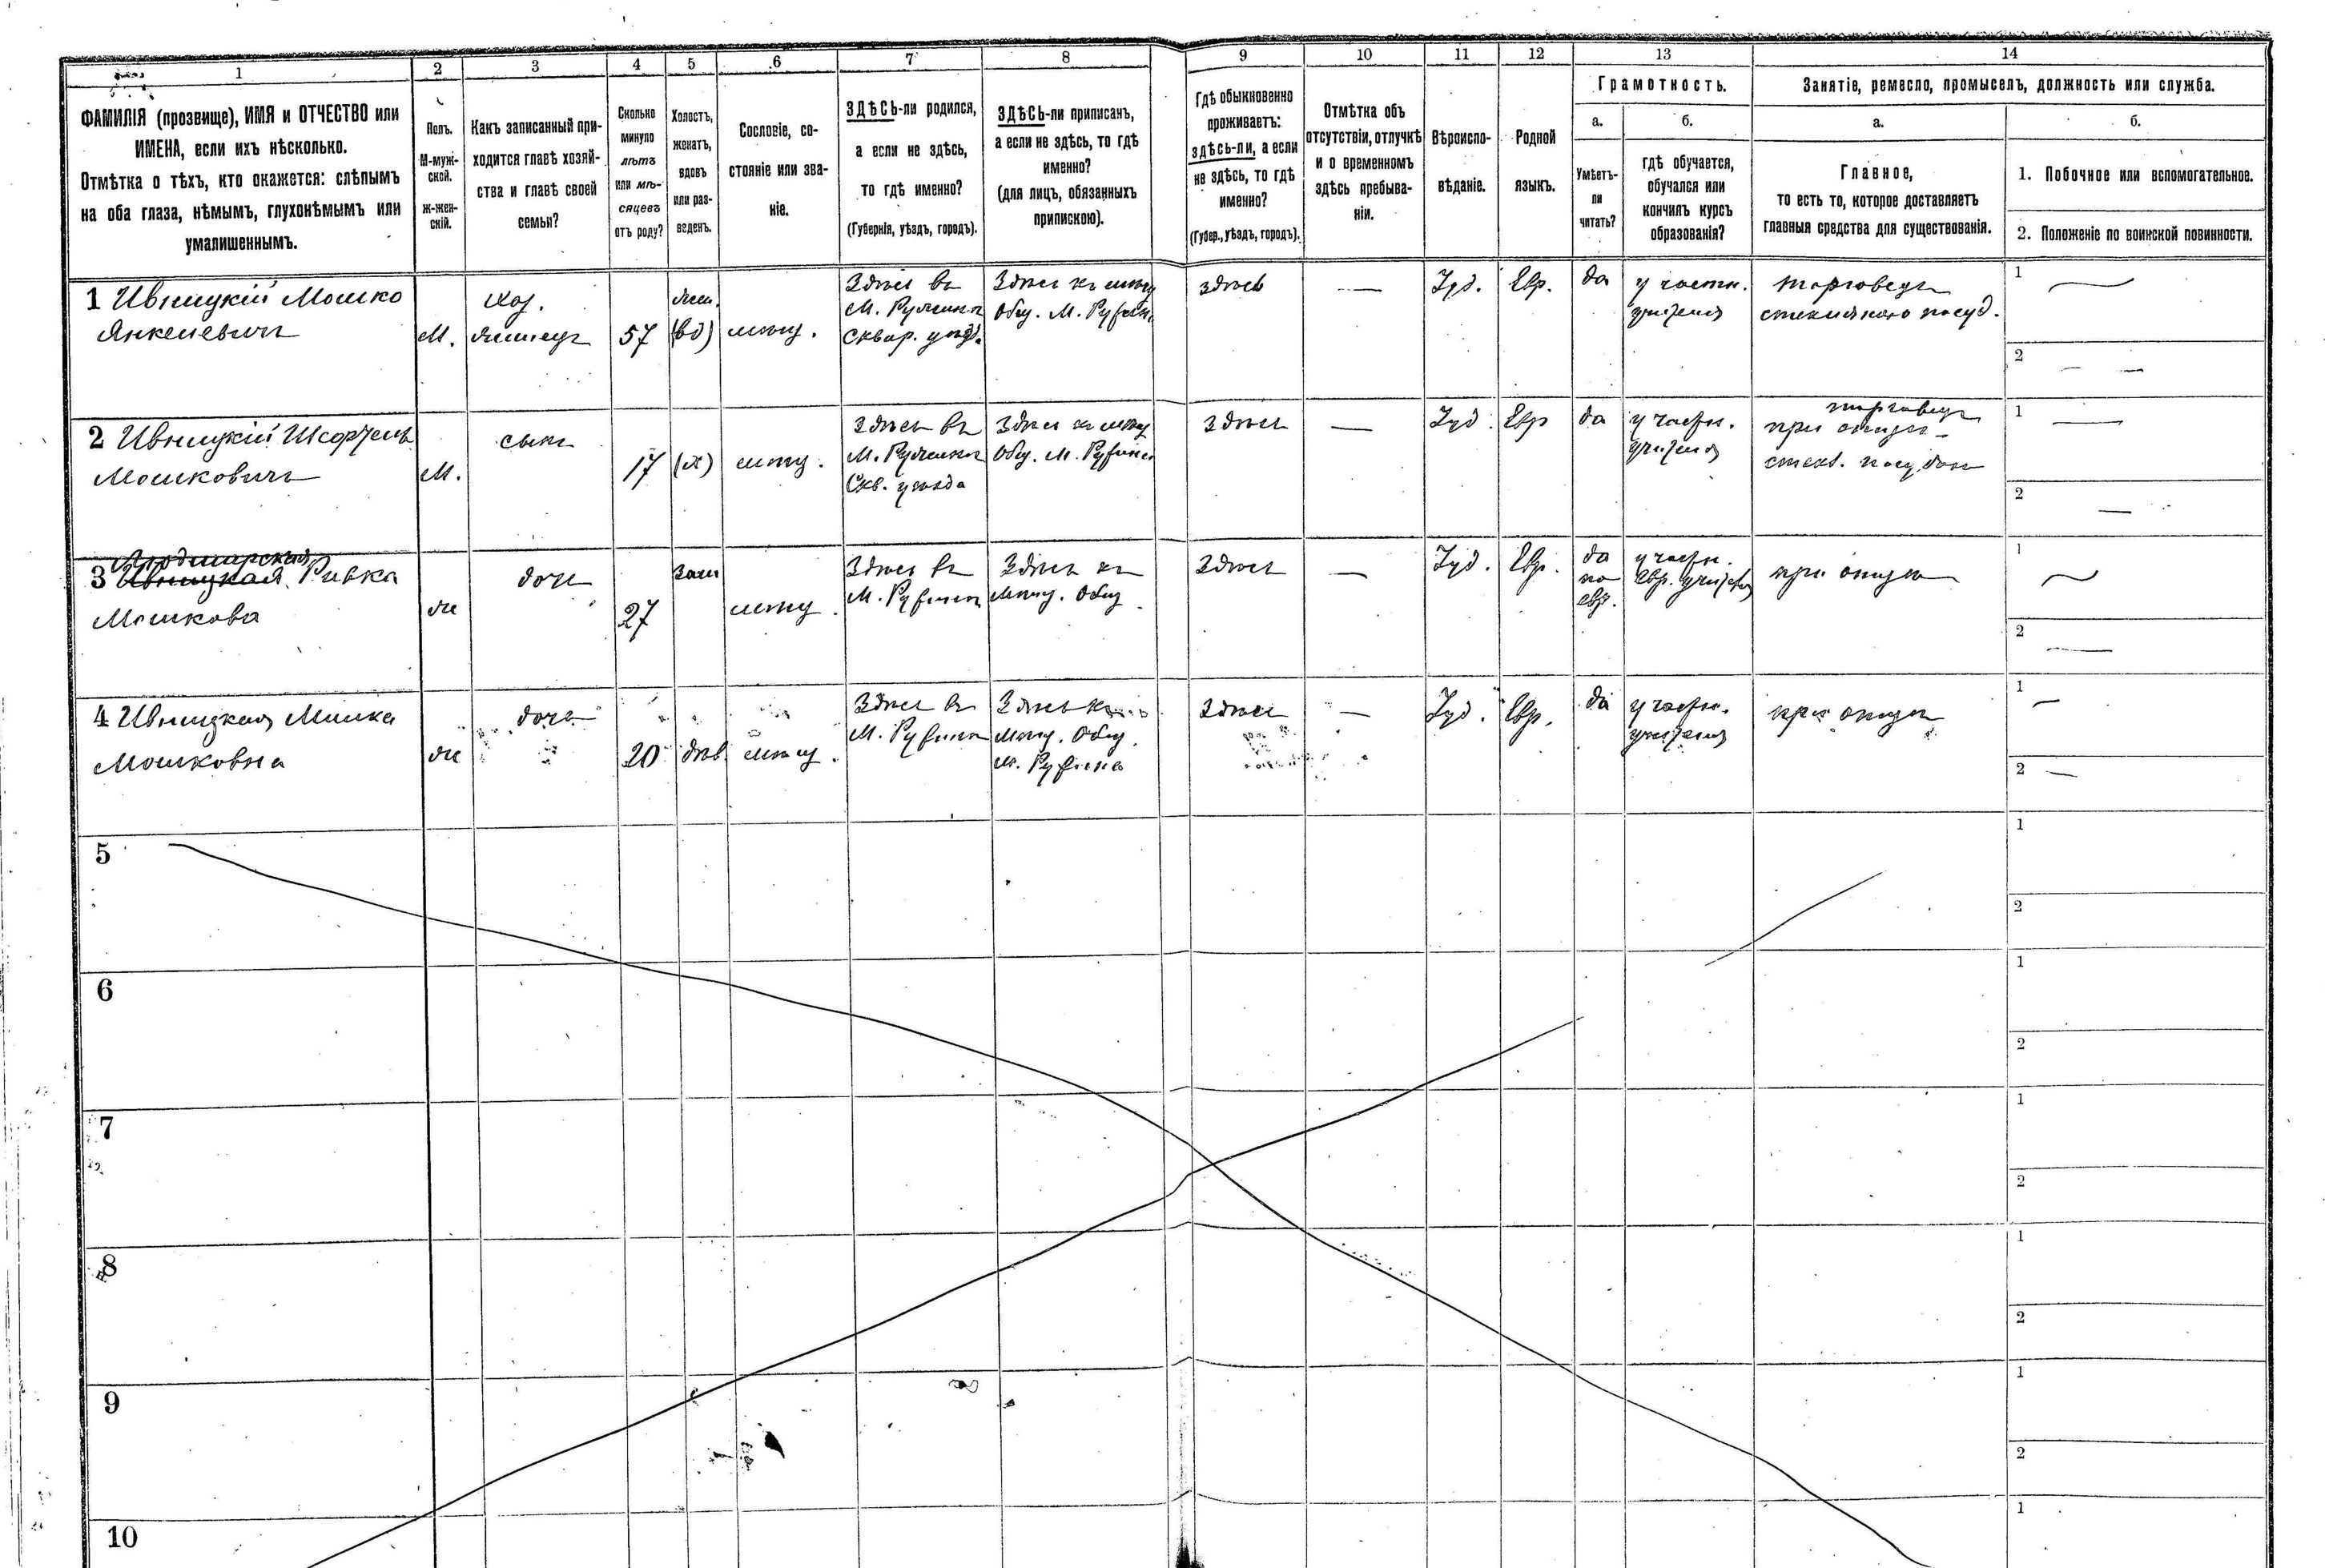 1
2
3
4
5
6
7
8
9
10
11
12
13
14
ФАМИЛІЯ (прозвище), ИМЯ и ОТЧЕСТВО или
ИМЕНА, если ихъ нѣсколько.
Отмѣтка о тѣхъ, кто окажется: слѣпымъ
на оба глаза, нѣмымъ, глухонѣмымъ или
умалишеннымъ.
Полъ.
М-муж-
ской.
ж-жен-
скій.
Какъ записанный при-
ходится главѣ хозяй-
ства и главѣ своей
семьи?
Сколько
минуло
лѣтъ
или мѣ-
сяцевъ
отъ роду?
Холостъ,
женатъ,
вдовъ
или раз-
веденъ.
Сословіе, со-
стояніе или зва-
ніе.
ЗДѢСЬ-ли родился,
а если не здѣсь,
то гдѣ именно?
(Губернія, уѣздъ, городъ).
ЗДѢСЬ-ли приписанъ,
а если не здѣсь, то гдѣ
именно?
(для лицъ, обязанныхъ
припискою).
Гдѣ обыкновенно
проживаетъ:
здѣсь-ли, а если
не здѣсь, то гдѣ
именно?
(Губер., уѣздъ, городъ).
Отмѣтка объ
отсутствіи, отлучкѣ
и о временномъ
здѣсь пребыва-
ніи.
Вѣроиспо-
вѣданіе.
Родной
языкъ.
Грамотность.
а.
Умѣетъ-
ли
читать?
б.
гдѣ обучается,
обучался или
кончилъ курсъ
образованія?
Занятіе, ремесло, промыселъ, должность или служба.
а.
Главное,
то есть то, которое доставляетъ
главныя средства для существованія.
б.
1. Побочное или вспомогательное.
2. Положеніе по воинской повинности.
1 Ивницкій Мошко
Янкелевичъ
М.
хоз.
57
(вд)
мѣщ.
Здѣсь въ
М. Ружинѣ
Сквир. уѣзд.
Здѣсь къ мѣщ
Общ. М. Ружин.
здѣсь
—
Іуд.
Евр.
да
у частн.
учителя
торговецъ
стекляною посуд.
1
2
2 Ивницкій
Мошковичъ
М.
сынъ
17
(х)
мѣщ.
Здѣсь въ
М. Ружинѣ
Скв. уѣзда
Здѣсь къ мѣщ
Общ. М. Ружина
Здѣсь
—
Іуд.
Евр
да
у частн.
учителя
торговецъ
при отцѣ
стекл. посудою
1
2
3 Ивницкая Ривка
Мошкова
ж
дочь
27
зам
мѣщ.
Здѣсь въ
М. Ружинѣ
Здѣсь къ
мѣщ. Общ.
Здѣсь
—
Іуд.
Евр.
да
по
евр.
у частн.
евр. учителя
при отцѣ
1
2
4 Ивницкая Минка
Мошковна
ж
дочь
20
дѣв.
мѣщ.
Здѣсь въ
М. Ружинѣ
Здѣсь къ
мѣщ. Общ.
м. Ружина
Здѣсь
—
Іуд.
Евр.
да
у частн.
учителя
при отцѣ
1
2
5
1
2
6
1
2
7
1
2
8
1
2
9
1
2
10
1